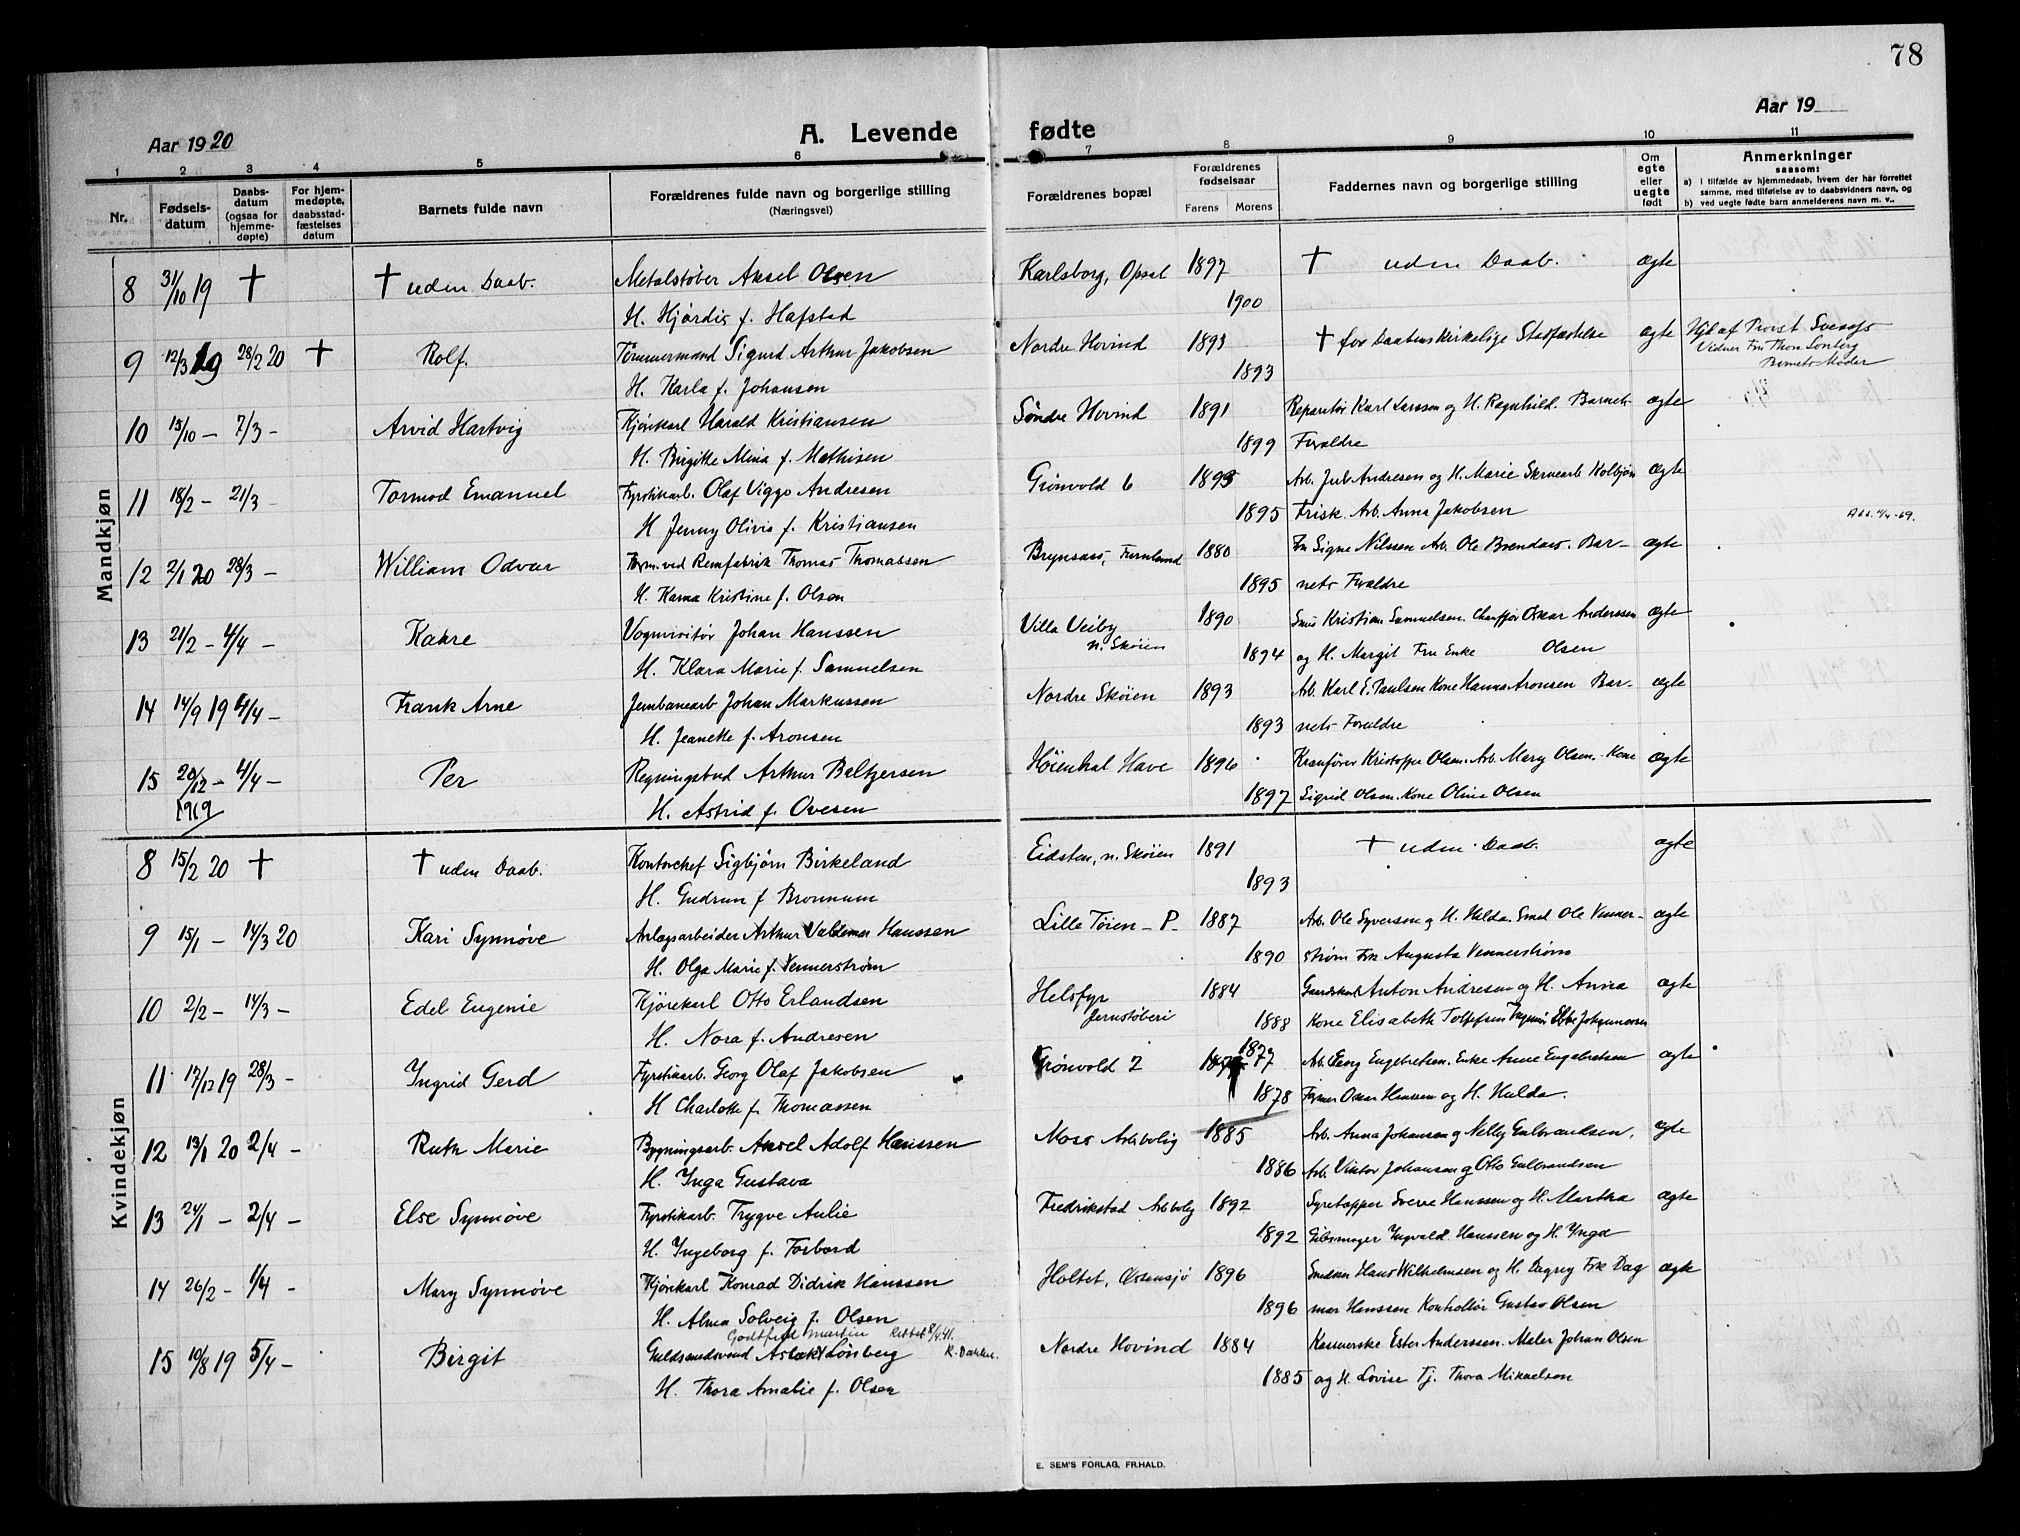 78
Aar 1920
A. Levende fødte
Aar 19
1 2 3 4 5 6 7 8 9 10 11
Nr.
Fødsels-
datum
Daabs-
datum
(ogsaa for
hjemme-
døpte)
For hjem-
medøpte,
daabsstad-
fæstelses
datum
Barnets fulde navn
Forældrenes fulde navn og borgerlige stilling
(Næringsvei)
Forældrenes bopæl
Forældrenes
fødselsaar
Farens Morens
Faddernes navn og borgerlige stilling
Om
egte
eller
uegte
født
Anmerkninger
saasom:
a) I tilfælde av hjemmedaab, hvem der har forrettet
samme, med tilføielse av to daabsvidners navn, og
b) ved uegte fødte barn anmelderens navn m. v..
Mandkjøn
8 31/10 19 † † uden Daab. Metalstøber Aksel Olsen Karlsborg, Opsal 1897 † uden Daab. ægte
H. Hjørdis f. Hafstad 1900
9 12/3 19 28/2 20 † Rolf. Tømmermand Sigurd Arthur Jakobsen Nordre Hovind 1893 † før Daabens kirkelige Stadfæstelse ægte Hjd af Provst
Vidner Fru Thora Lønberg
H. Karla f. Johansen 1893 Barnets Moder
10 15/10 – 7/3 – Arvid Hartvig Kjørekarl Harald Kristiansen Søndre Hovind 1891 Reparatør Karl Larssen og H. Ragnhild. Barnets ægte
H. Birgitte Mina f. Mathisen 1899 Forældre
11 18/2 – 21/3 – Tormod Emanuel Fyrstikarb. Olaf Viggo Andresen Grønvold 6 1895 Arb. Jul Andresen og H. Marie Kolbjørn ægte
H Jenny Olivia f. Kristiansen 1895 Frisk. Arb. Anna Jakobsen
12 2/1 20 28/3 – William Odvar Form. ved Remfabrik Thomas Thomassen Brynsaas, 1880 Fru Signe Nilssen Arb. Ole Brendaas. Bar- ægte
H. Karna Kristine f. Olsen 1895 nets Forældre
13 21/2 – 4/4 – Kaare Vognvisitør Johan Hanssen Villa Veiby 1890 Kristian Samuelsen. Chauffør Oskar Anderssen ægte
n. Skøien
H. Klara Marie f. Samuelsen 1894 og H. Margit Fru Enke Olsen
14 14/9 19 4/4 – Frank Arne Jernbanearb Johan Markussen Nordre Skøien 1893 Arb. Karl E. Paulsen Kone Hanna Aronsen Bar- ægte
H. Jeanette f. Aronsen 1893 nets Forældre
15 20/12 – 4/4 – Per Regningsbud Arthur Beltzersen Høienhal Have 1896 Kranfører Kristoffer Olsen. Arb. Mary Olsen. Kone ægte
1919
H. Astrid f. Ovesen 1897 Sigrid Olsen. Kone Oline Olsen
Kvindekjøn
8 15/2 20 † † uden Daab. Kontorchef Sigbjørn Birkeland Eidsten, n. Skøien 1891 † uden Daab. ægte
H. Gudrun f Bronnum 1893
9 15/1 – 14/3 20 Kari Synnøve Anlægsarbeider Arthur Valdemar Hanssen Lille Tøien – P. 1887 Arb. Ole Syversen og H. Hilda. Smed Ole Venner- ægte
H. Olga Marie f. Vennerstrøm 1890 strøm Frk Augusta Vennerstrøm
10 2/2 – 14/3 – Edel Eugenie Kjørekarl Otto Erlandsen Helsfyr 1884 Gaardskarl Anton Andresen og H. Anna ægte
Jernstøberi
H. Nora f. Andresen 1888 Kone Elisabeth Tollefsen Johannessen
11 17/12 19 28/3 – Ingrid Gerd Fyrstikarb. Georg Olaf Jakobsen Grønvold 2 1877 Arb. Georg Engebretsen. Enke Anne Engebretsen ægte
H Charlotte f. Thomassen 1878 Former Oskar Hanssen og H. Hulda.
12 13/1 20 2/4 – Ruth Marie Bygningsarb. Aksel Adolf Hanssen Moss Arb bolig 1885 Arb. Anna Johansen og Nelly Gulbrandsen. ægte
H. Inga Gustava 1886 Arb. Viktor Johansen og Otto Gulbrandsen
13 24/1 – 2/4 – Else Synnøve Fyrstikarb. Trygve Aulie Fredrikstad Arb bolig 1892 Syretapper Sverre Hanssen og H. Martha ægte
H. Ingeborg f. Forbord 1892 Gibsmager Ingvald Hanssen og H. Inga
14 26/2 – 1/4 – Mary Synnøve Kjørekarl Konrad Didrik Hanssen Holtet, Østensjø 1896 Snedker Hans Wilhelmsen og H. Dagny Frk Dag ægte
H. Alma Solveig f. Olsen 1896 mar Hanssen Kontrollør Gustav Olsen
Godtfred Martin Rettet 8/4.41.
15 10/8 19 5/4 – Birgit Guldsmedsvend Aslak Lønberg Nordre Hovind 1884 Kassererske Ester Anderssen. Maler Johan Olsen
H. Thora Amalie f. Olsen 1885 og H. Lovise Tj. Thora Mikaelsen
E. SEM'S FORLAG, FR.HALD.